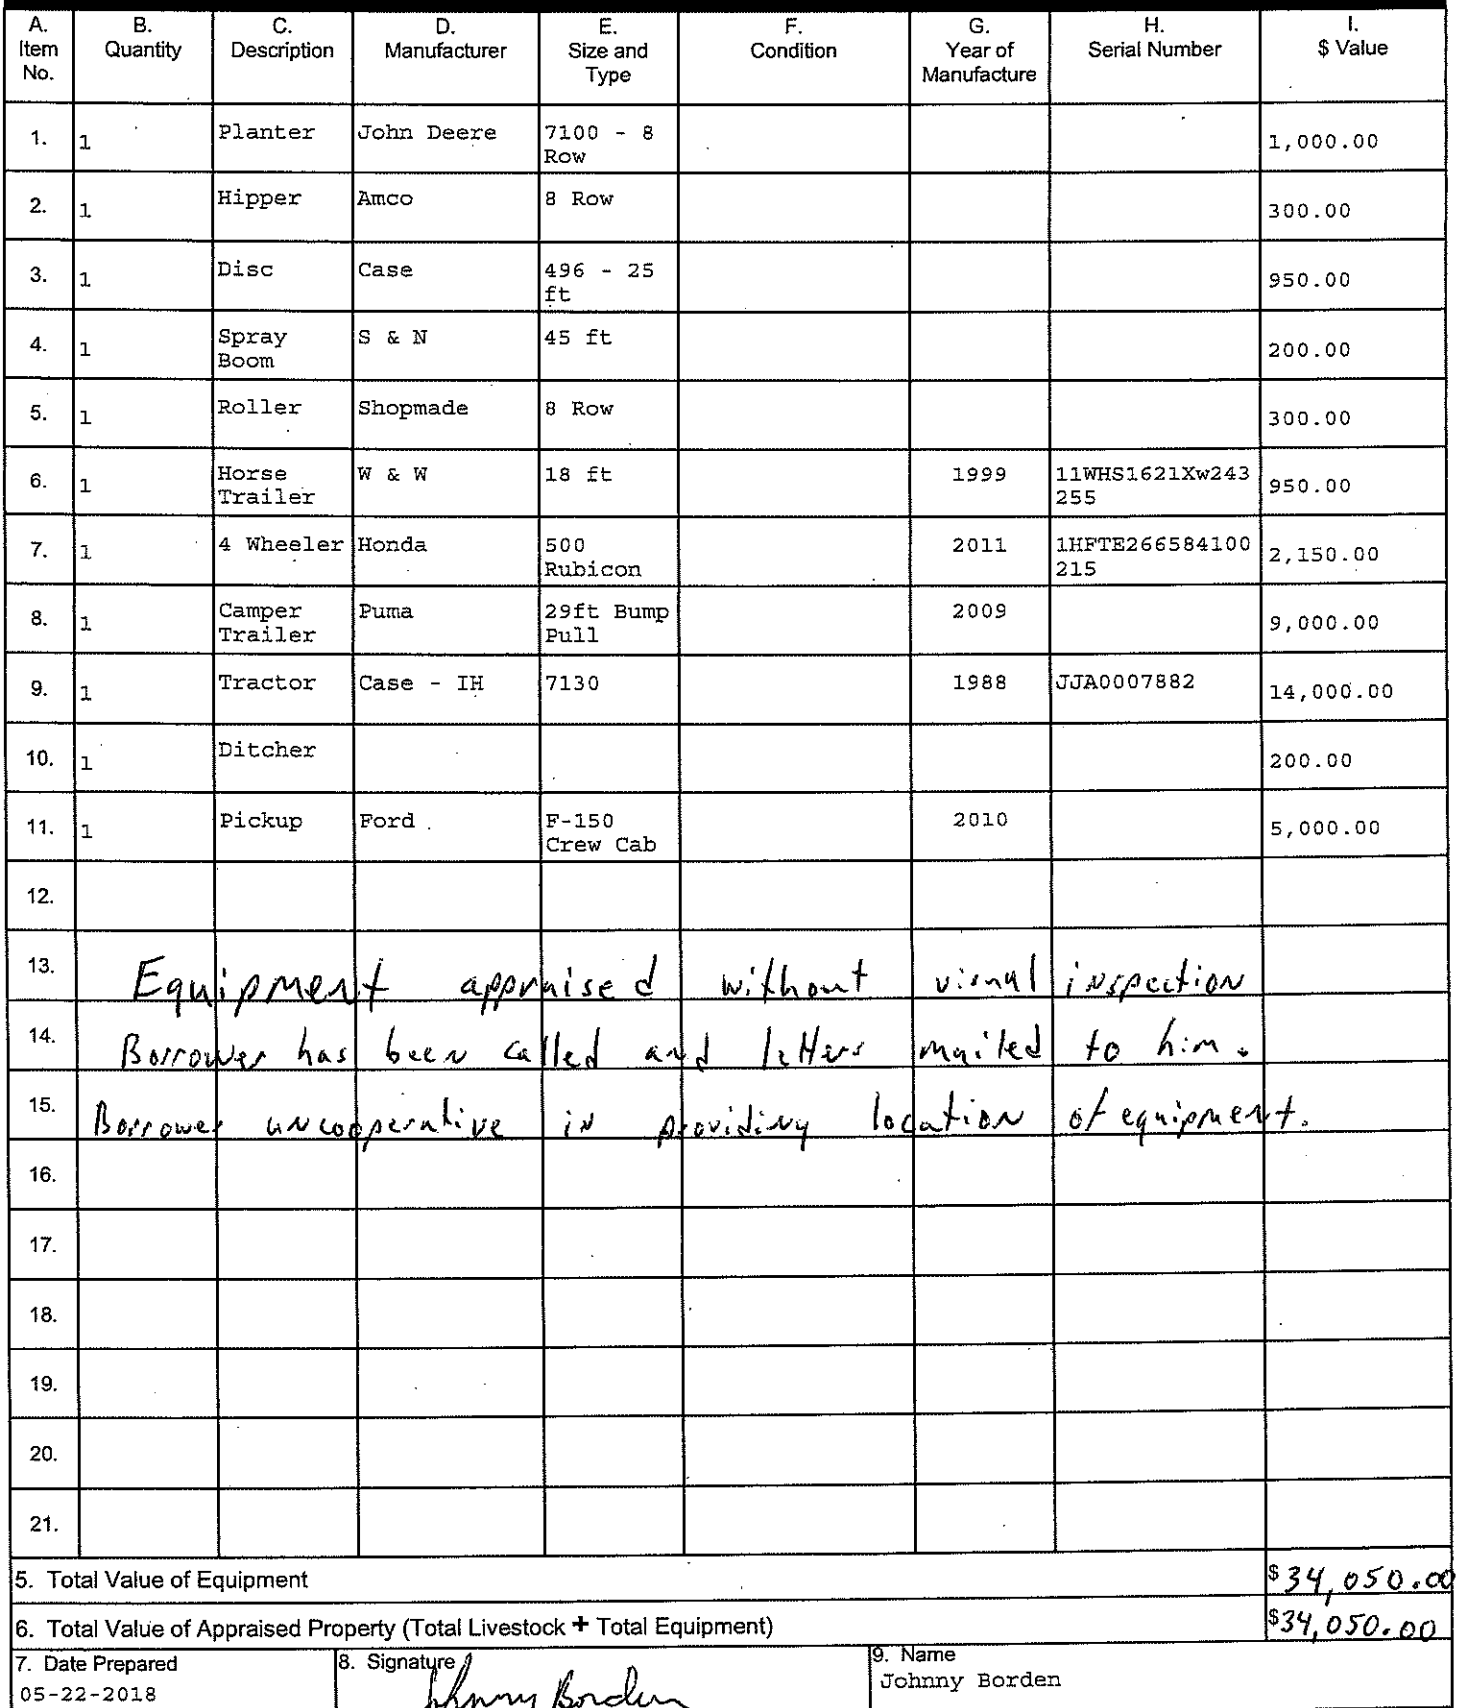 A. Item No. B. Quantity C. Description D. Manufacturer E. Size and Type F. Condition G. Year of Manufacture H. Serial Number I. $ Value
1. 1 Planter John Deere 7100 - 8 Row 1,000.00
2. 1 Hipper Amco 8 Row 300.00
3. 1 Disc Case 496 - 25 ft 950.00
4. 1 Spray Boom S & N 45 ft 200.00
5. 1 Roller Shopmade 8 Row 300.00
6. 1 Horse Trailer W & W 18 ft 1999 11WHS1621Xw243255 950.00
7. 1 4 Wheeler Honda 500 Rubicon 2011 1HFTE266584100215 2,150.00
8. 1 Camper Trailer Puma 29ft Bump Pull 2009 9,000.00
9. 1 Tractor Case - IH 7130 1988 JJA0007882 14,000.00
10. 1 Ditcher 200.00
11. 1 Pickup Ford F-150 Crew Cab 2010 5,000.00
12.
13. Equipment appraised without visual inspection
14. Borrower has been called and letters mailed to him.
15. Borrower uncooperative in providing location of equipment.
16.
17.
18.
19.
20.
21.
5. Total Value of Equipment $34,050.00
6. Total Value of Appraised Property (Total Livestock + Total Equipment) $34,050.00
7. Date Prepared 8. Signature 9. Name
05-22-2018 Johnny Borden Johnny Borden